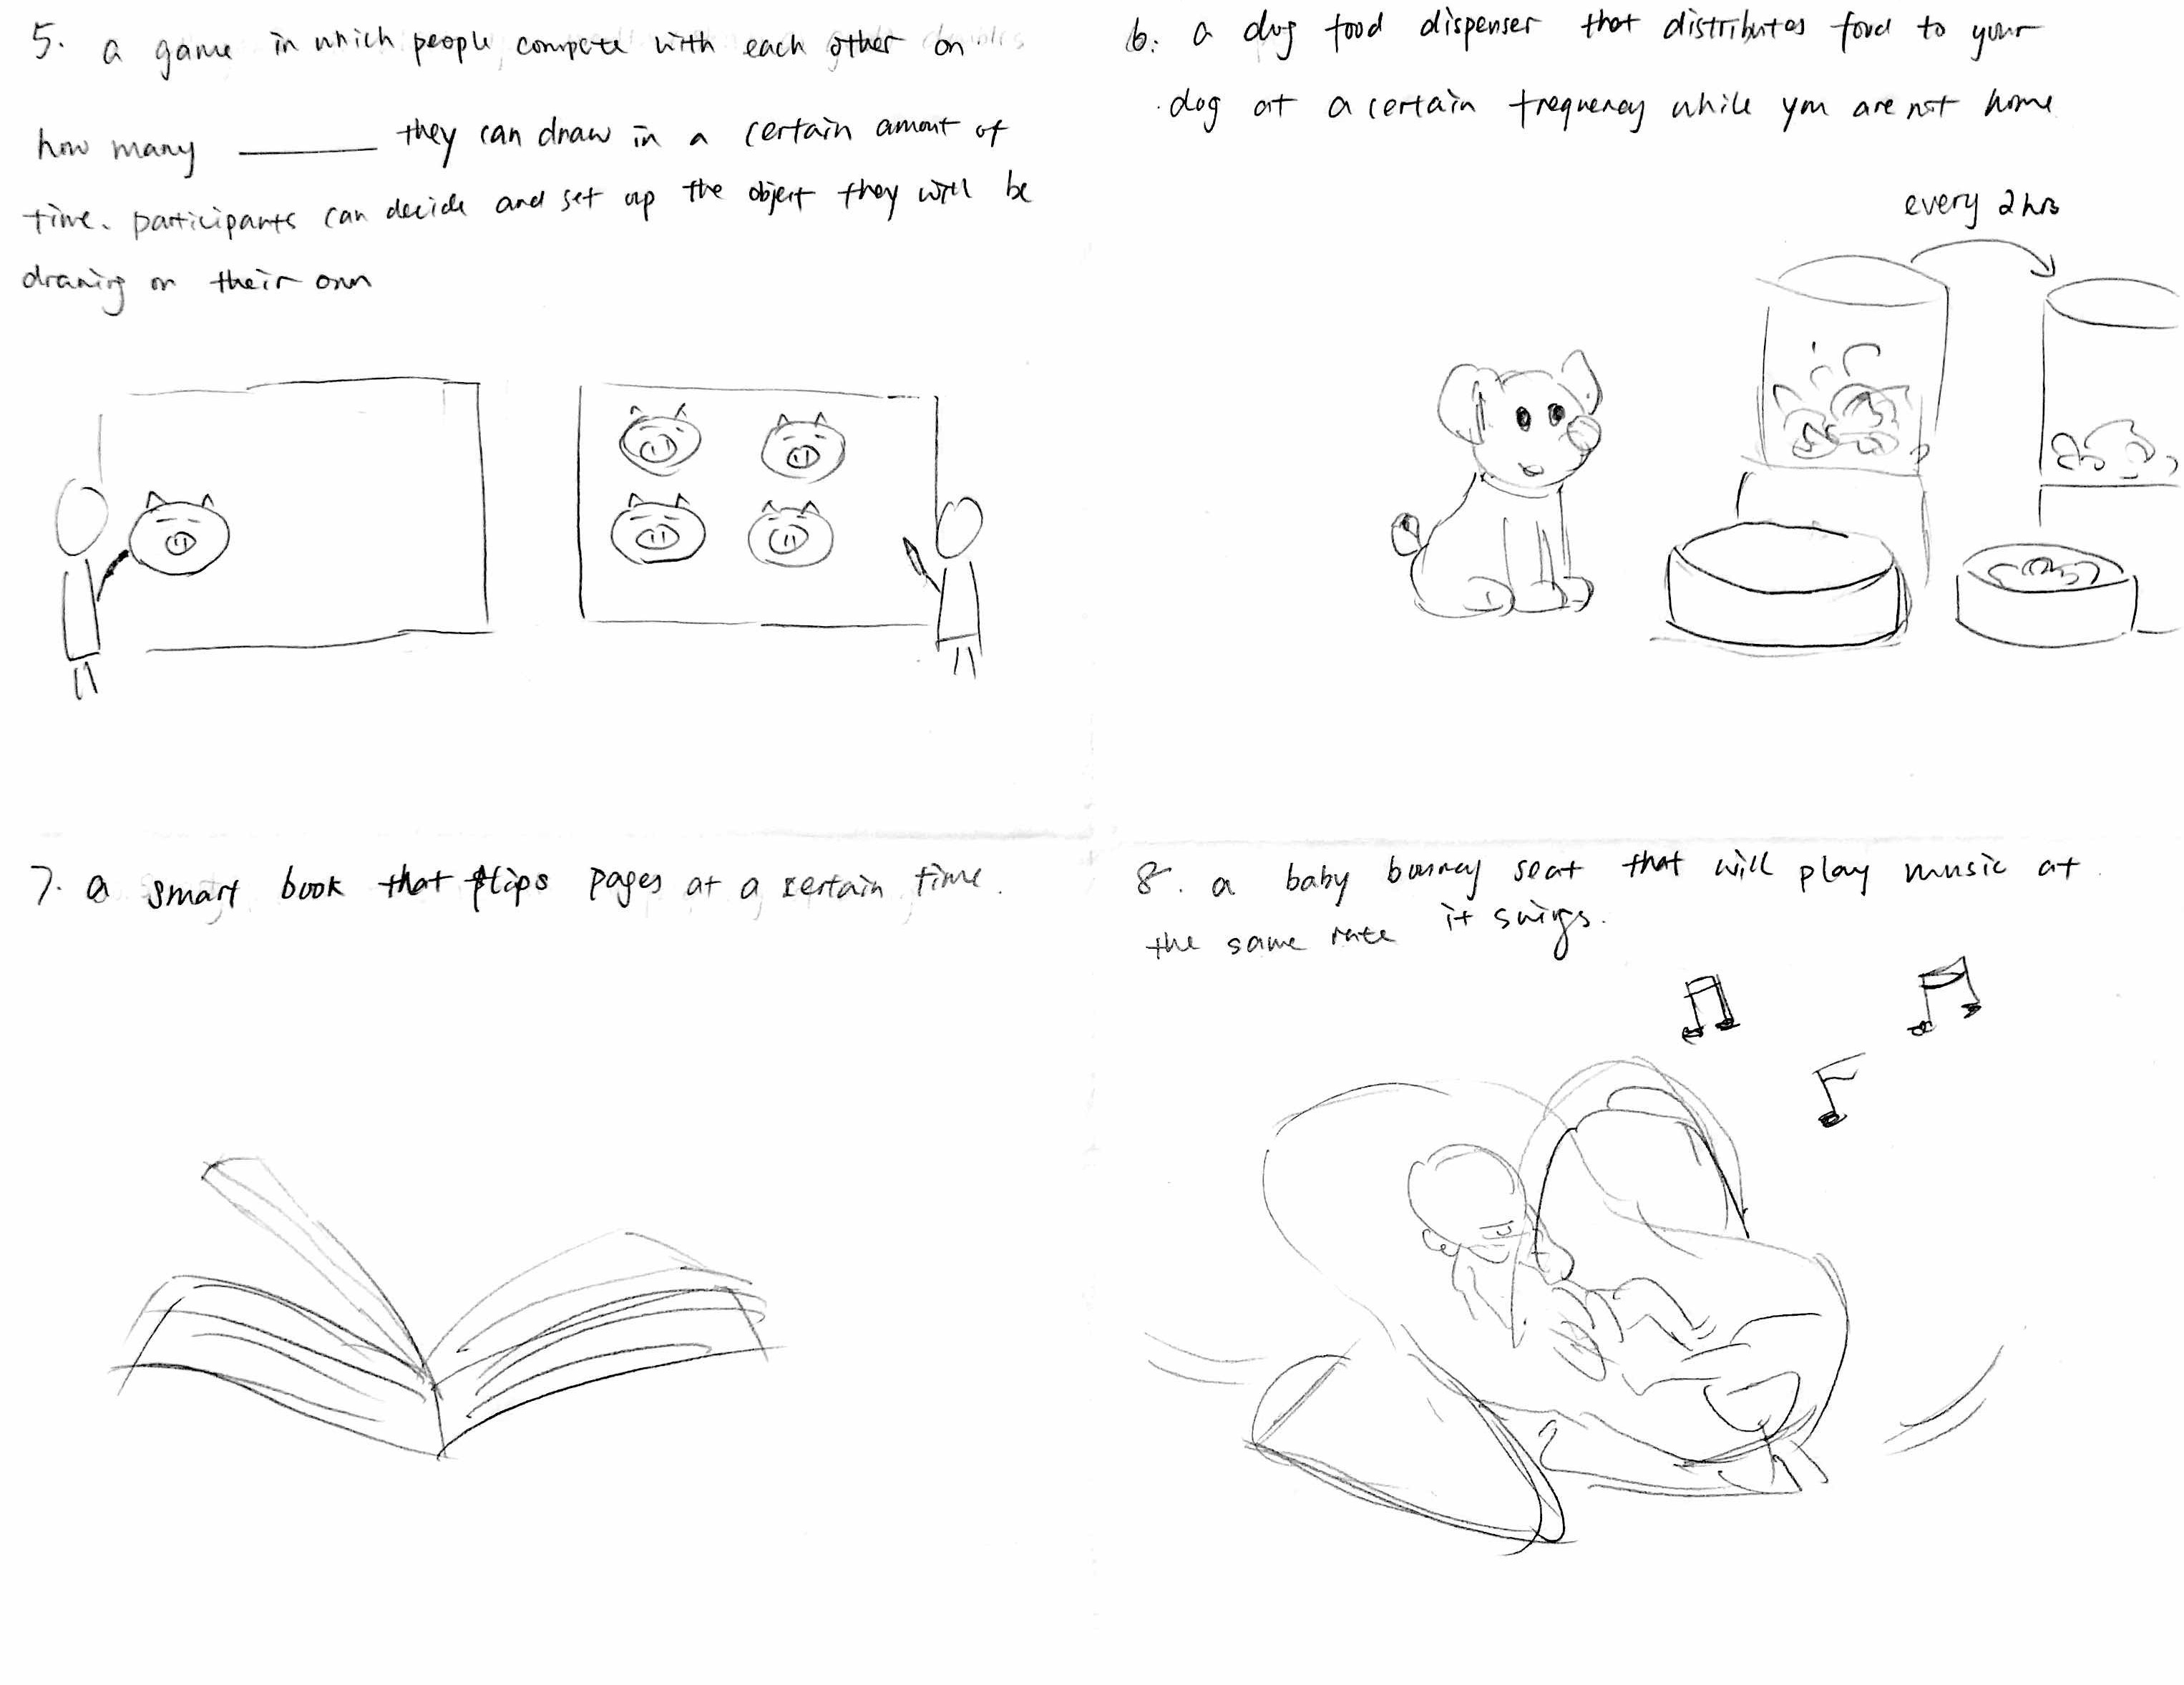 5. a game in which people compete with each other on
how many ______ they can draw in a certain amount of
time. participants can decide and set up the object they will be
drawing on their own
6. a dog food dispenser that distributes food to your
dog at a certain frequency while you are not home
every 2 hrs
7. a smart book that flips pages at a certain time.
8. a baby bouncy seat that will play music at
the same rate it swings.